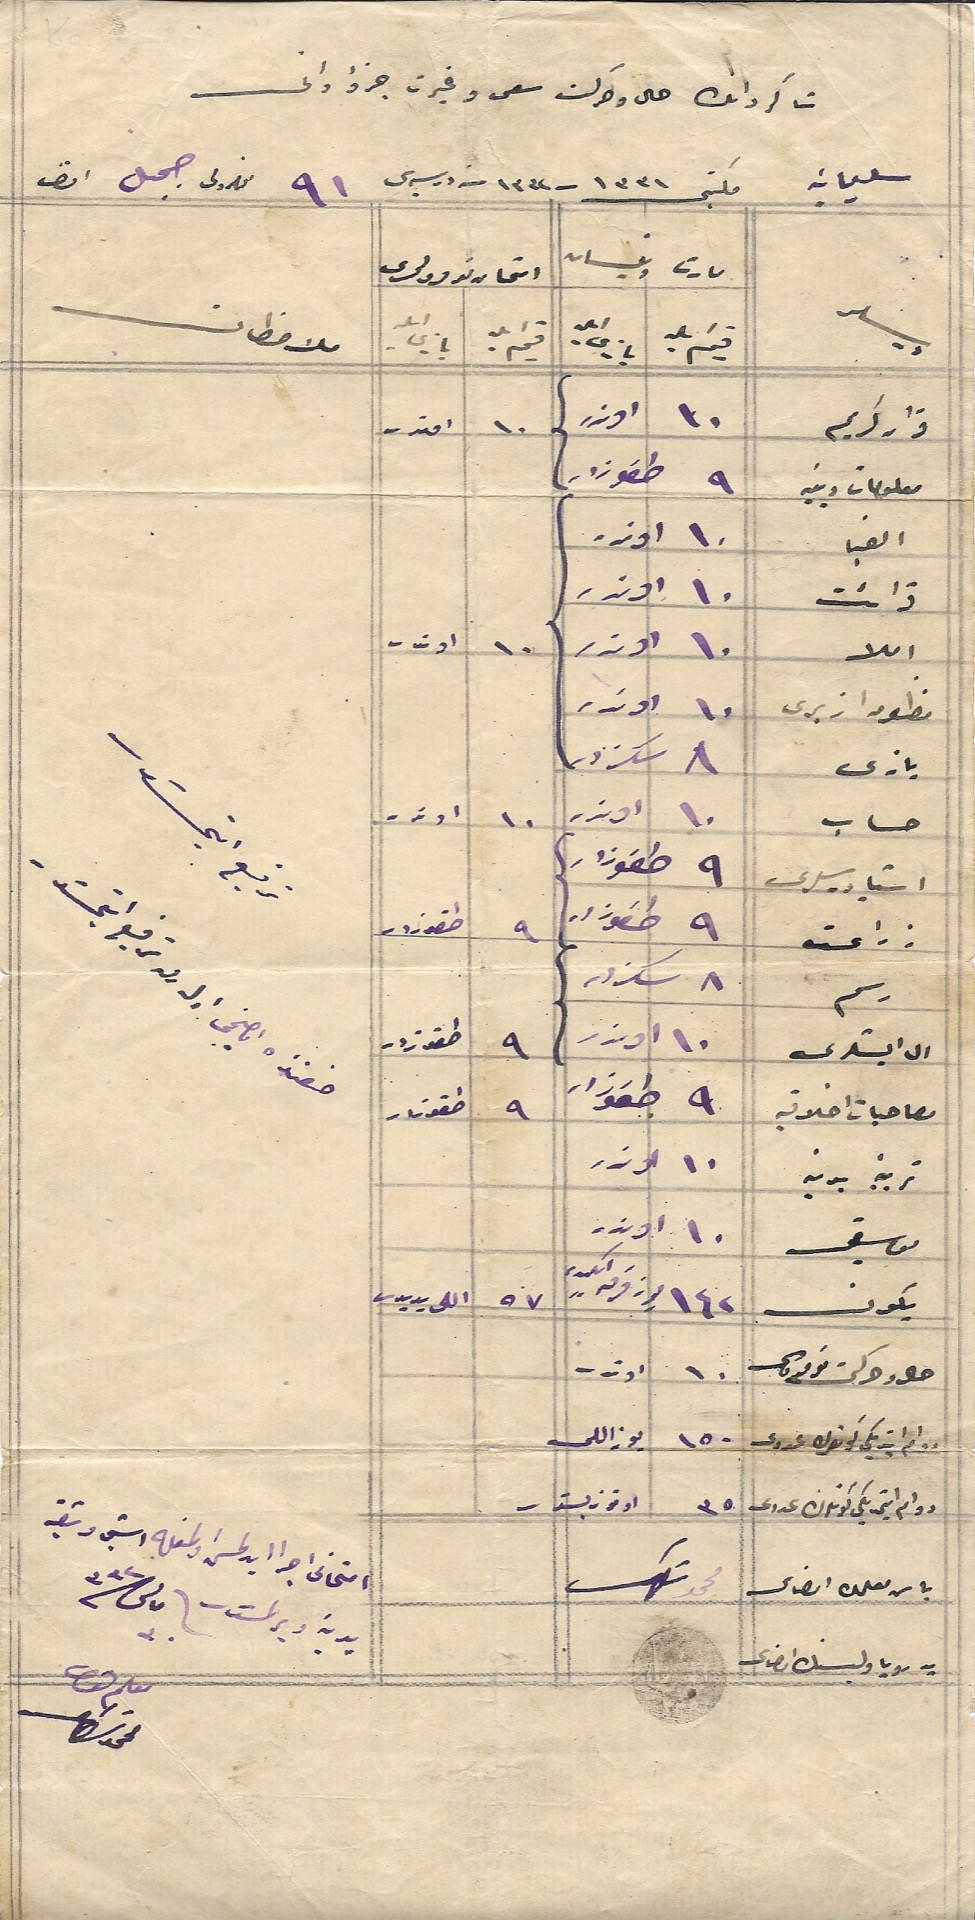 شاكردانك حال و حركت سعى و غيرت جزؤدانى
سليمانيه مكتبى ١٣٣١ - ١٣٣٢ سنه درسيه سى ٩١ نومرولى جميل افندى
مارت و نيسان امتحان نومرولرى
رقم ايله يازى ايله رقم ايله يازى ايله ملاحظات
قرآن كريم ١٠ اوندر ١٠ اوندر
معلومات دينيه ٩ طقوزدر
الفبا ١٠ اوندر
قرائت ١٠ اوندر
املا ١٠ اوندر ١٠ اوندر
منظومه ازبرى ١٠ اوندر
يازى ٨ سكزدر
حساب ١٠ اوندر ١٠ اوندر
اشيا درسلرى ٩ طقوزدر
زراعت ٩ طقوزدر ٩ طقوزدر
رسم ٨ سكزدر
ال ايشلرى ١٠ اوندر ٩ طقوزدر
مصاحبات اخلاقيه ٩ طقوزدر ٩ طقوزدر
تربيه بدنيه ١٠ اوندر
موسيقى ١٠ اوندر
يكون ١٤٢ يوز قرق ايكيدر ٥٧ اللى يديدر
حال و حركت نومروسى ١٠ اوندر
دوام ايتديكى كونلرك عددى ١٥٠ يوز اللى
دوام ايتمديكى كونلرك عددى ٣٥ اوتوز بشدر
باش معلمك امضاسى محمد
پدر ويا وليسنك امضاسى
ترفيع ايتمشدر
صنفنده برنجى اوله رق ترفيع ايتمشدر
امتحانى اجرا ايدلمش اولمغله اشبو وثيقه
يدينه ويرلمشدر
معلم
محمد